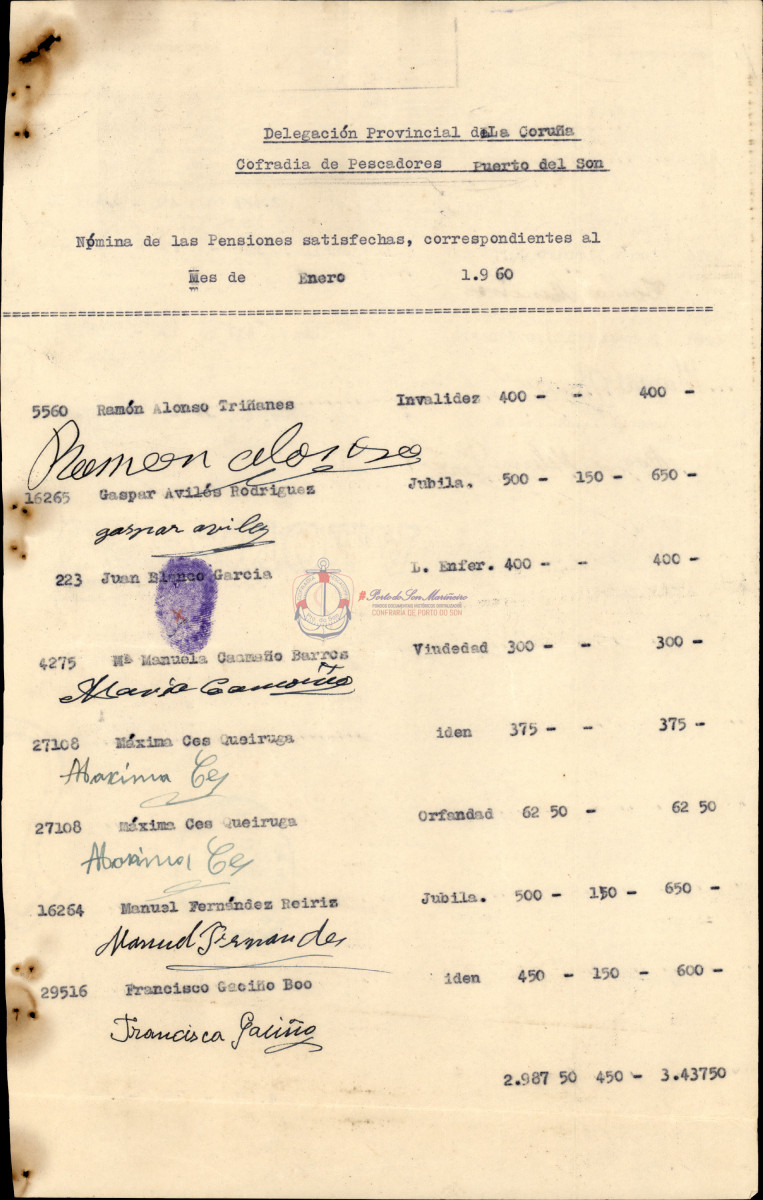 Delegación Provincial de La Coruña
Cofradia de Pescadores Puerto del Son
Nómina de las Pensiones satisfechas, correspondientes al
Mes de Enero 1.960
5560 Ramón Alonso Triñanes Invalidez 400 - - 400 -
Ramon alonso
16265 Gaspar Avilés Rodriguez Jubila. 500 - 150 - 650 -
gaspar aviles
223 Juan Blanco Garcia L. Enfer. 400 - - 400 -
Porto do Son Mariñeiro
FONDOS DOCUMENTAIS HISTÓRICOS DIXITALIZADOS
CONFRARÍA DE PORTO DO SON
4275 Mª Manuela Caamaño Barros Viudedad 300 - - 300 -
Maria Caamaño
27108 Máxima Ces Queiruga iden 375 - - 375 -
Maxima Ces
27108 Máxima Ces Queiruga Orfandad 62 50 - 62 50
Maxima Ces
16264 Manuel Fernández Reiriz Jubila. 500 - 150 - 650 -
Manuel Fernandes
29516 Francisco Gaciño Boo iden 450 - 150 - 600 -
Francisca Gaciño
2.987 50 450 - 3.43750